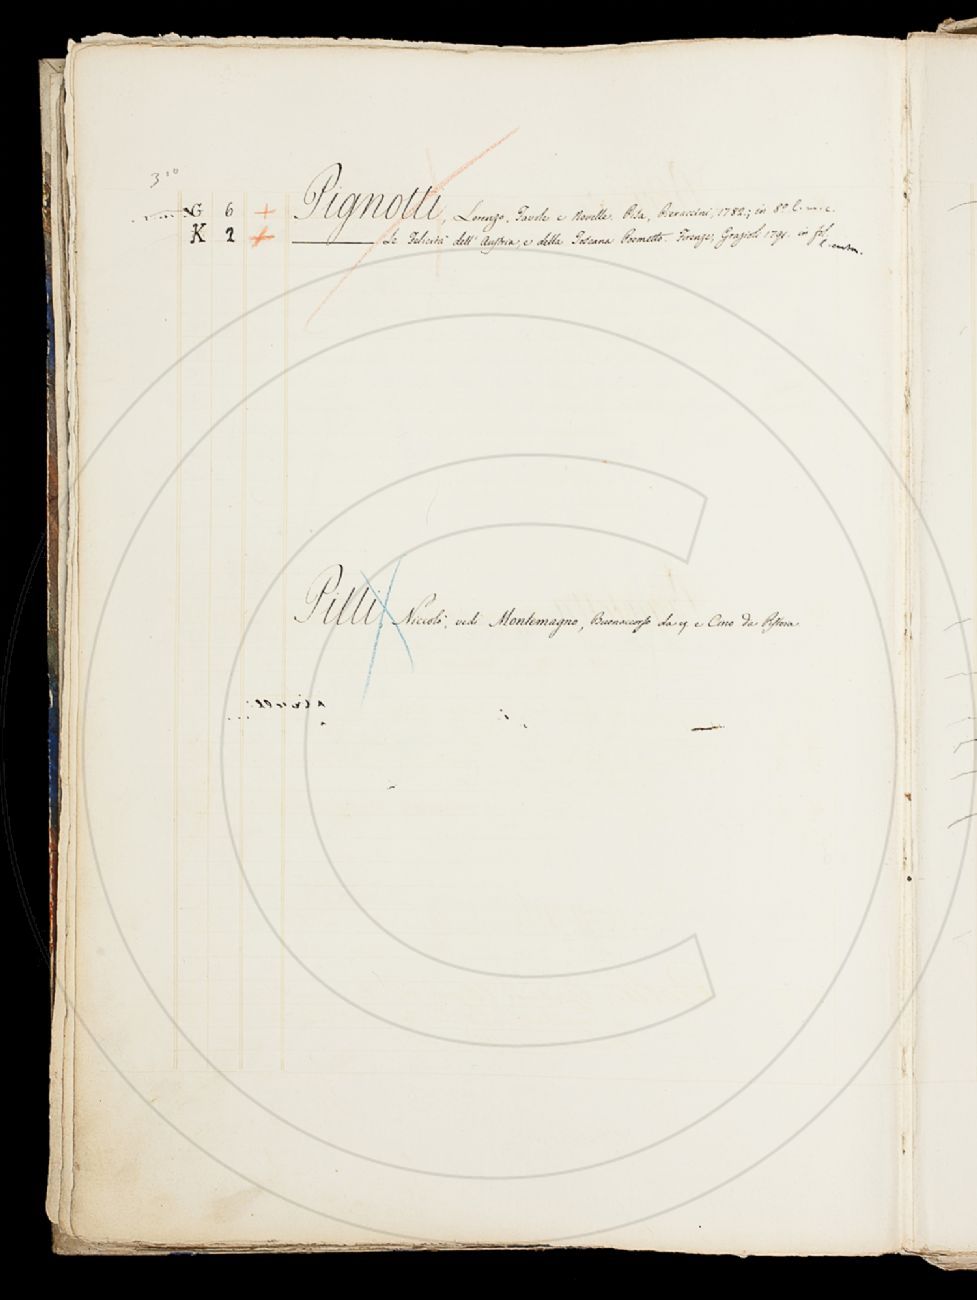 3°°
G 6 + Pignotti, Lorenzo, Favole e Novelle. Pisa, Peraccini, 1782.; in 8° l. m. c.
K 2 + ——— Le Felicità dell' Austria, e della Toscana Poemetto. Firenze, Grazioli 1791. in fol.
Pilli, Niccolò, vedi Montemagno, Buonaccorso da, e Cino da Pistoia